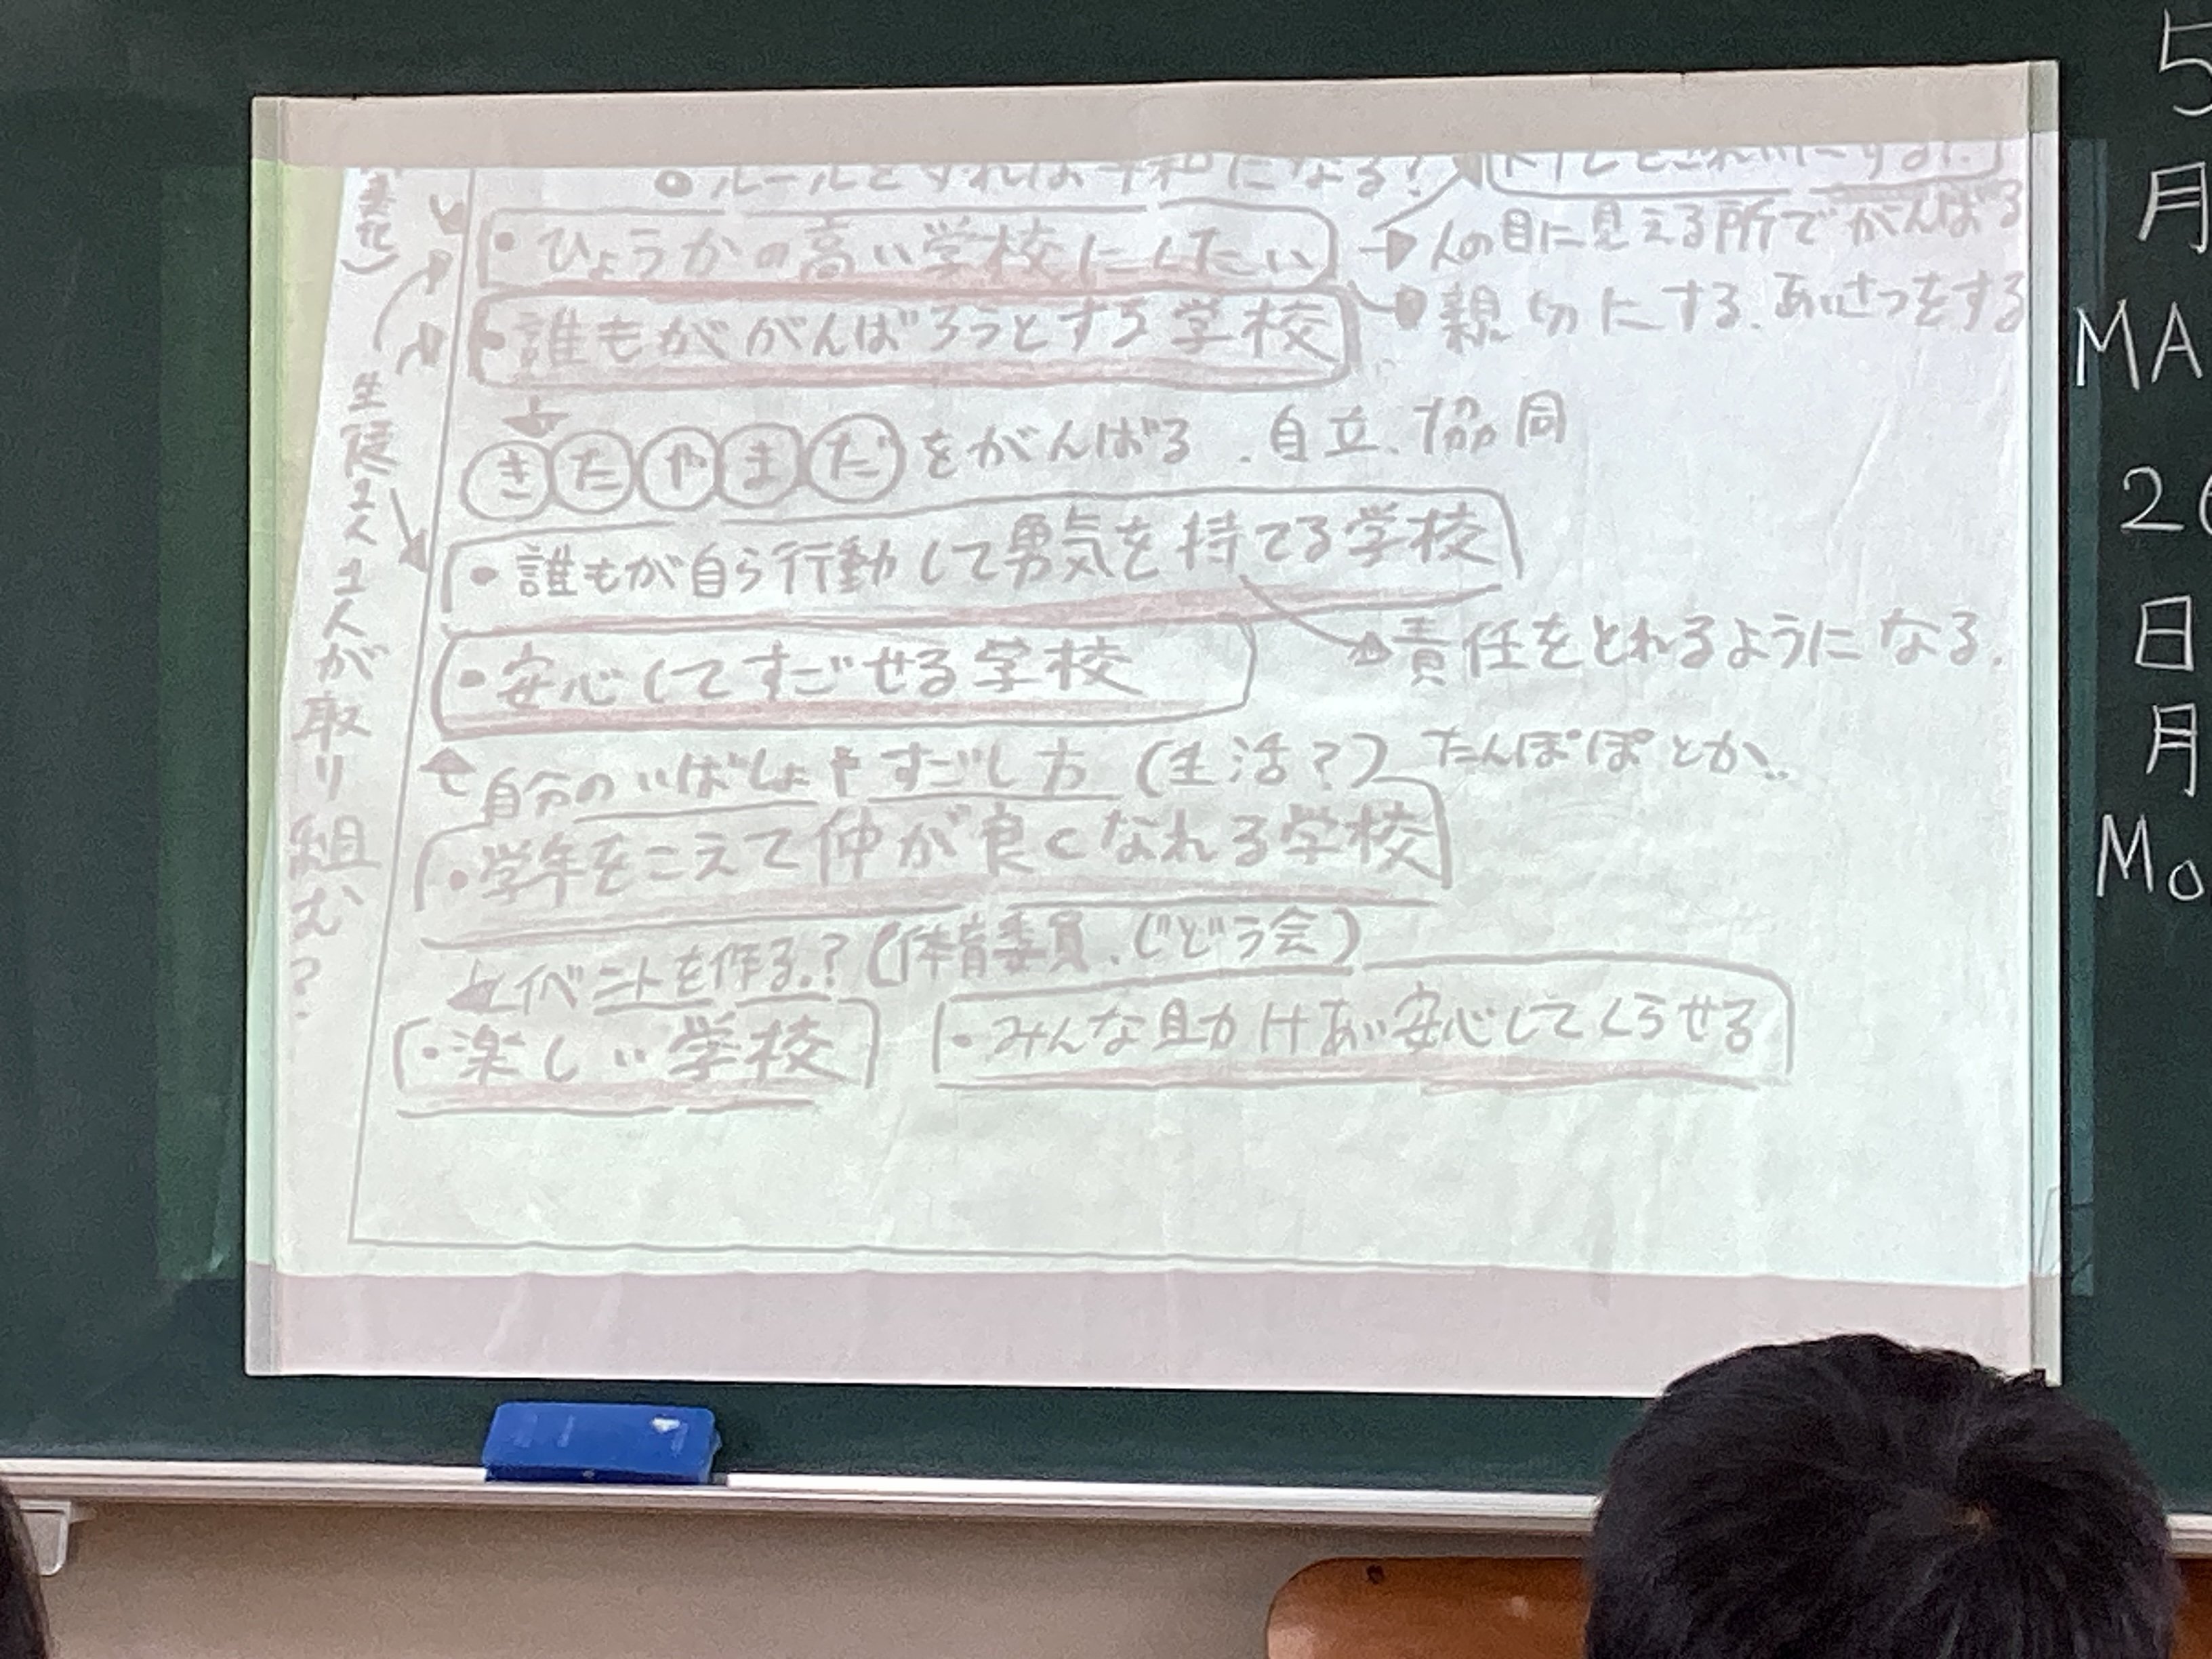 ひょうかの高い学校にしたい
→人の目に見える所でがんばる
親切にする、あいさつをする
・誰もががんばろうとする学校
きたやまだをがんばる 、自立、協同
・誰もが自ら行動して勇気を持てる学校
→責任をとれるようになる。
・安心してすごせる学校
自分のいばしょやすごし方(生活?) たんぽぽとか、、
・学年をこえて仲が良くなれる学校
イベントを作る。?(体育委員、じどう会)
・楽しい学校
・みんな助けあい安心してくらせる
生徒1人1人が取り組む?
5
月
MA
2
日
月
Mo